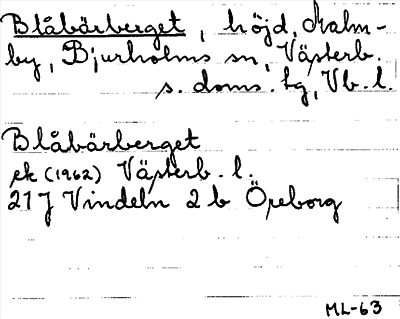 Blåbärberget, höjd, Malm-
by, Bjurholms sn, Västerb.
s. doms. tg, Vb. l.
Blåbärberget
ek (1962) Västerb. l.
21 J Vindeln 2 b Öreborg
ML-63